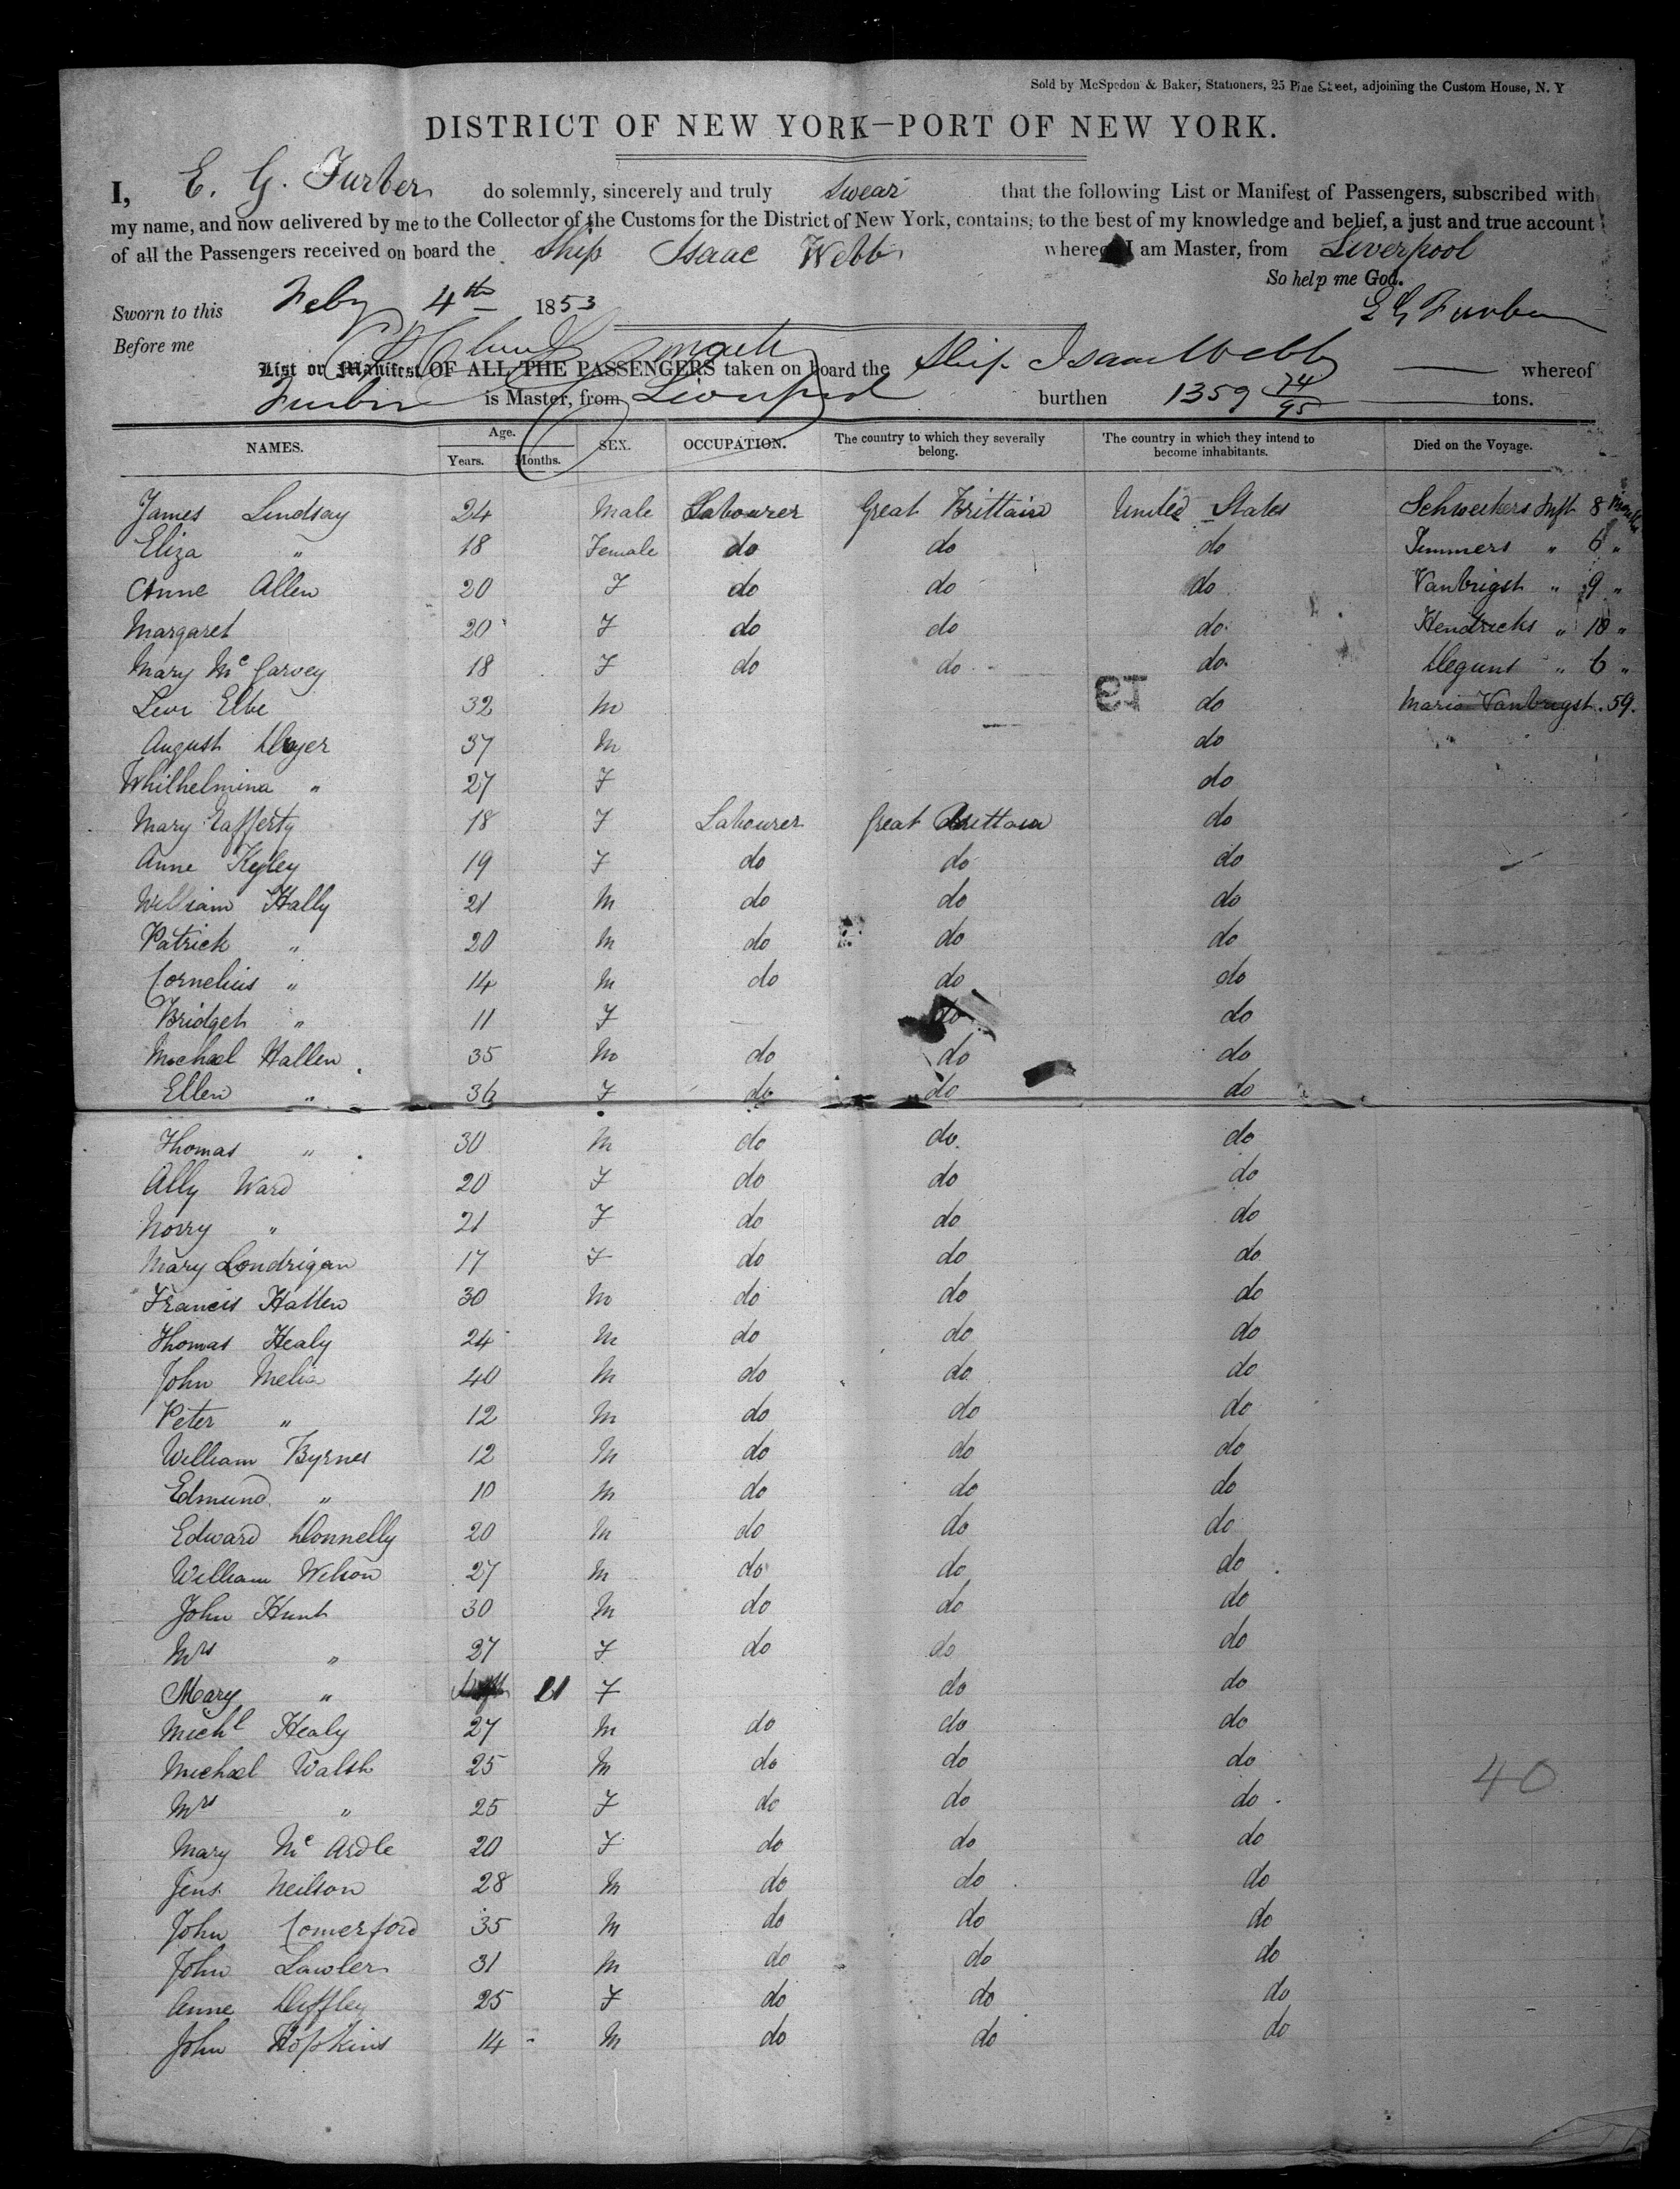 Sold by McSpedon & Baker, Stationers, 25 Pine Street, adjoining the Custom House, N. Y
DISTRICT OF NEW YORK—PORT OF NEW YORK.
I, E. G. Furber do solemnly, sincerely and truly swear that the following List or Manifest of Passengers, subscribed with
my name, and now delivered by me to the Collector of the Customs for the District of New York, contains, to the best of my knowledge and belief, a just and true account
of all the Passengers received on board the Ship Isaac Webb whereof I am Master, from Liverpool
So help me God.
Sworn to this Feby 4th 1853 E G Furber
Before me
List or Manifest OF ALL THE PASSENGERS taken on board the Ship Isaac Webb whereof
Furber is Master, from Liverpool burthen 1359 74/95 tons.
NAMES. Age. Years. Months. SEX. OCCUPATION. The country to which they severally belong. The country in which they intend to become inhabitants. Died on the Voyage.
James Lindsay 24 Male Labourer Great Brittain United States Schwerkers Inft 8 Months
Eliza " 18 Female do do do Timmers " 6 "
Anne Allen 20 F do do do Vanbrigst " 9 "
Margaret 20 F do do do Hendricks " 10 "
Mary Mc Garvey 18 F do do do " 6 "
Levi Elbe 32 M do Maria Vanbrugst . 59.
August Meyer 37 M do
Whilhelmina " 27 F do
Mary Rafferty 18 F Labourer Great Brittain do
Anne Kegley 19 F do do do
William Hally 21 M do do do
Patrick " 20 M do do do
Cornelius " 14 M do do do
Bridget " 11 F — do do
Michael Hallen 35 M do do do
Ellen " 36 F do do do
Thomas " 30 M do do do
Ally Ward 20 F do do do
Norry " 21 F do do do
Mary Londrigan 17 F do do do
Francis Hallen 30 M do do do
Thomas Healy 24 M do do do
John Melia 40 M do do do
Peter " 12 M do do do
William Byrnes 12 M do do do
Edmund " 10 M do do do
Edward Donnelly 20 M do do do
William Wilson 27 M do do do
John Hunt 30 M do do do
Mrs " 27 F do do do
Mary " 11 F do do
Michl Healy 27 M do do do
Michael Walsh 25 M do do do
40
Mrs " 25 F do do do
Mary Mc Ardle 20 F do do do
Jens Neilson 28 M do do do
John Comerford 35 M do do do
John Lawler 31 M do do do
Anne Diffley 25 F do do do
John Hopkins 14 M do do do